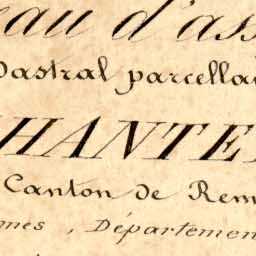 eau d'ass
Dastral parcella
HANTE
Canton de Rem
nes, Départemen